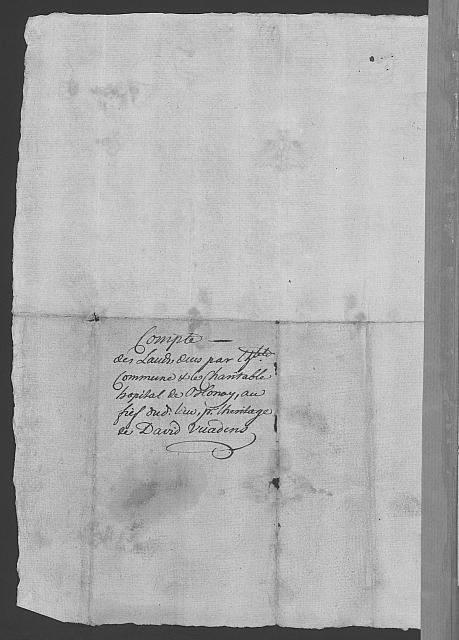 Compte —
des Lauds deus par l'h.ble
Commune & le Charitable
hopital de Blonay, au
fief dud. lieu, pr. l'heritage
de David Vuadens